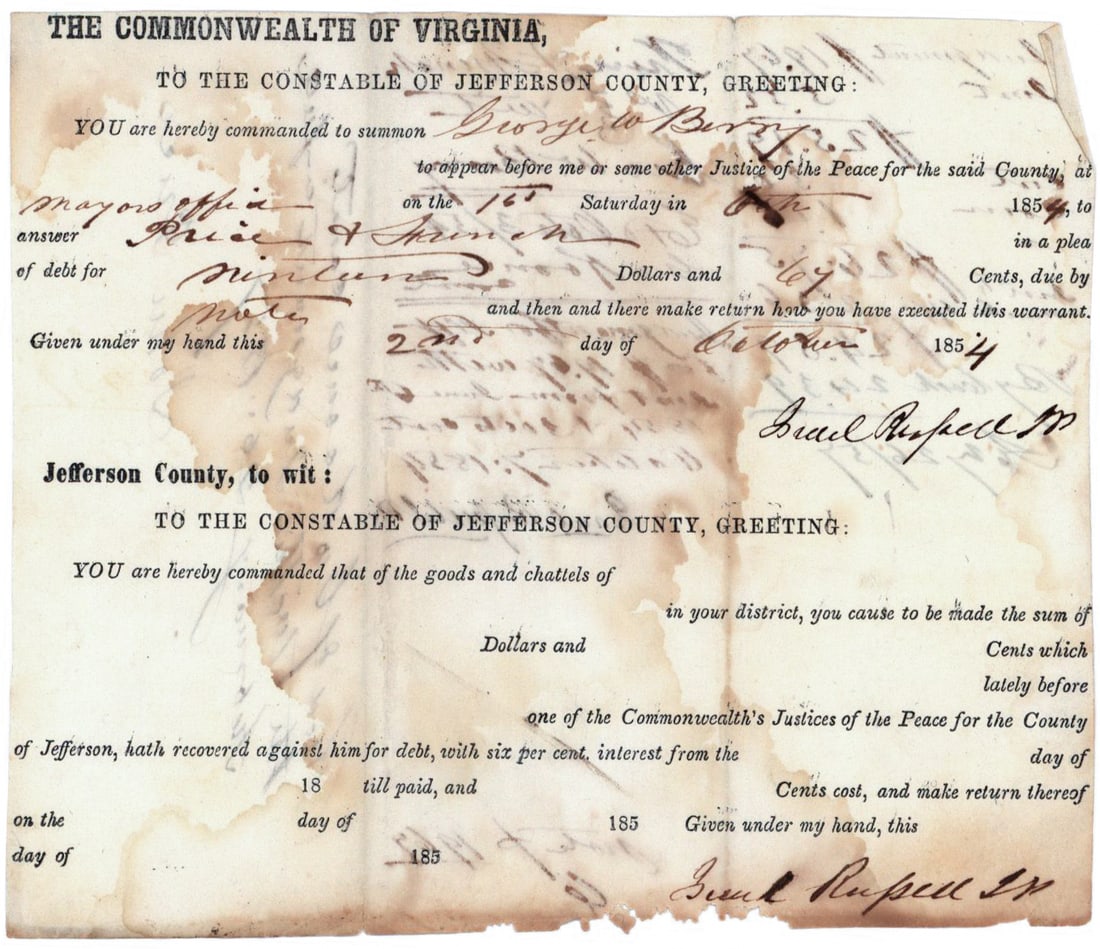 THE COMMONWEALTH OF VIRGINIA,
TO THE CONSTABLE OF JEFFERSON COUNTY, GREETING:
YOU are hereby commanded to summon George W Berry
to appear before me or some other Justice of the Peace for the said County, at
mayors office on the 1st Saturday in 1854, to
answer Price & in a plea
of debt for ninteen Dollars and 67 Cents, due by
note and then and there make return how you have executed this warrant.
Given under my hand this 2nd day of October 1854
Israel Russell JP
Jefferson County, to wit:
TO THE CONSTABLE OF JEFFERSON COUNTY, GREETING:
YOU are hereby commanded that of the goods and chattels of
in your district, you cause to be made the sum of
Dollars and Cents which
lately before
one of the Commonwealth's Justices of the Peace for the County
of Jefferson, hath recovered against him for debt, with six per cent. interest from the day of
18 till paid, and Cents cost, and make return thereof
on the day of 185 Given under my hand, this
day of 185
Israel Russell JP